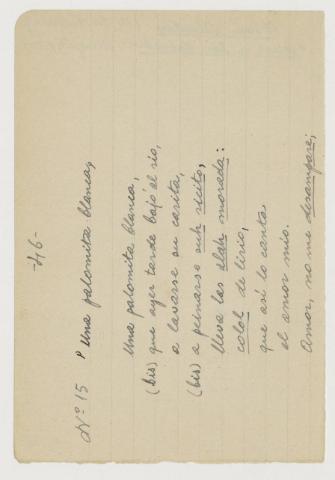 -46-
Nº 15 Una palomita blanca,
Una palomita blanca,
(bis) que ayer tarde bajó al río,
a lavarse su carita,
(bis) a peinarse suh ricito,
lleva las alah morada:
colol de lirio,
que así lo canta
el amor mío.
Amor, no me desampare;